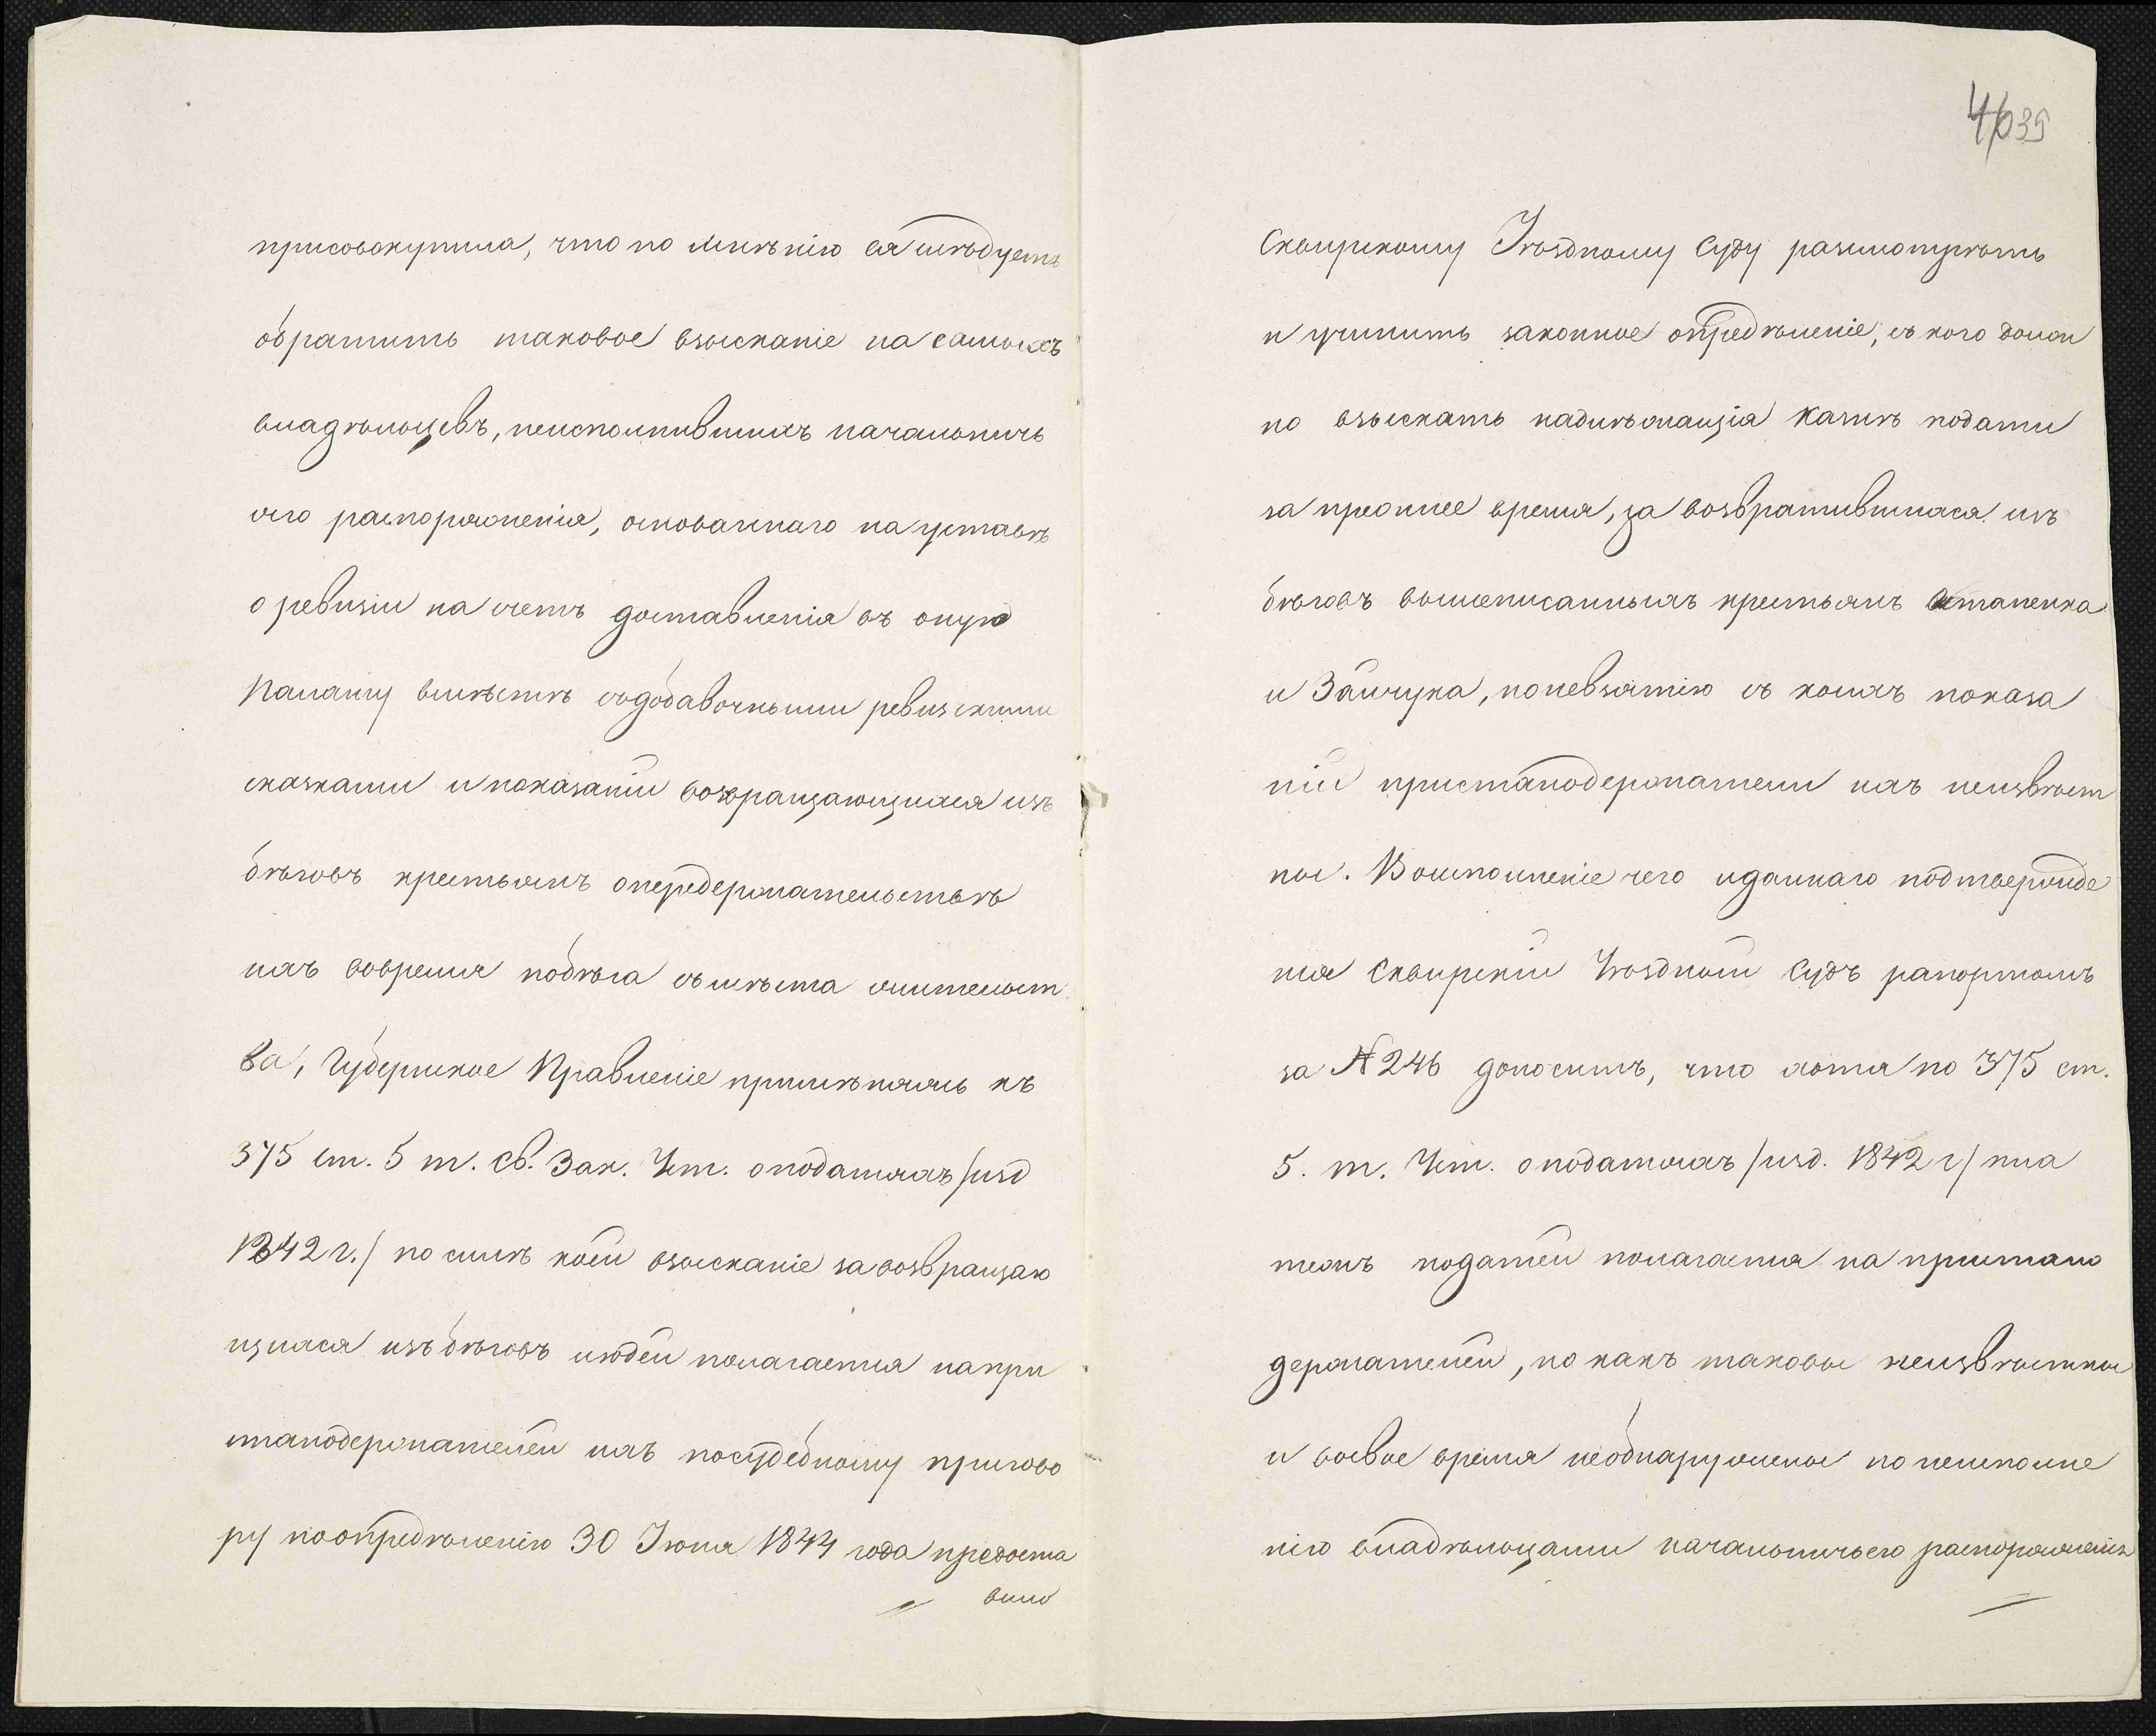 присовокупила, что по мнѣнію ея слѣдуетъ
обратить таковое взысканіе на самыхъ
владѣльцевъ, неисполнившихъ начальничь
яго распоряженія, основаннаго на уставѣ
о ревизіи на счетъ доставленія въ оную
Палату вмѣстѣ съ добавочными ревизскими
сказками и показаній возвращающихся изъ
бѣговъ крестьянъ опередержательствѣ
ихъ вовремя побѣга съ мѣста жительст
ва, Губернское Правленіе примѣняясь къ
375 ст. 5 т. Св. Зак. Уст. о податяхъ /изд
1842 г./ по силѣ коей взысканіе за возвращаю
щихся изъ бѣговъ людей полагается на при
станодержателей ихъ по судебному пригово
ру по опредѣленію 30 Іюня 1844 года предоста
вило
4035
Сквирскому Уѣздному Суду разсмотрѣть
и учинить законное опредѣленіе, съ кого долж
но взыскать надлѣжащія Казнѣ подати
за прежнее время, за возвратившихся изъ
бѣговъ вышеписанныхъ крестьянъ Остапенка
и Зайчука, по невзятію съ коихъ показа
ній пристанодержатели ихъ неизвѣст
ны. Воисполненіе чего и даннаго подтвержде
нія Сквирскій Уѣздный Судъ рапортомъ
за № 246 доноситъ, что хотя по 375 ст.
5. т. Уст. о податяхъ /изд. 1842 г/ пла
тежъ податей полагается на пристано
держателей, но какъ таковые неизвѣстны
и вовсе время необнаружены по неисполне
нію владѣльцами начальничьего распоряженія